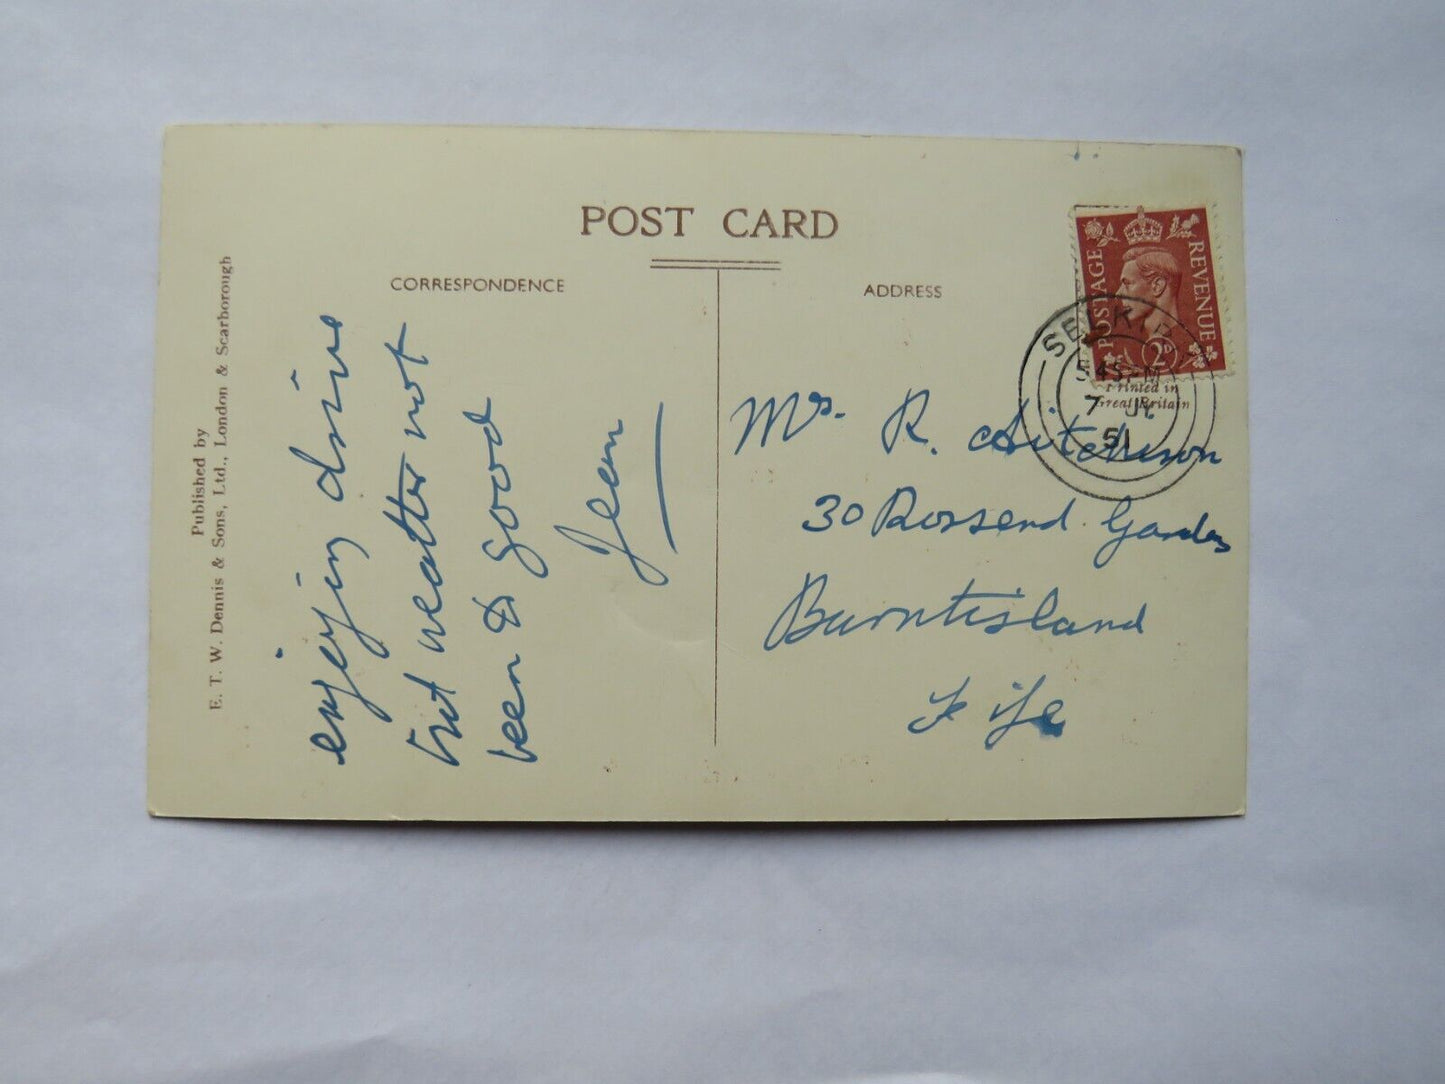 POST CARD
CORRESPONDENCE
ADDRESS
Published by
E. T. W. Dennis & Sons, Ltd., London & Scarborough
enjoying drive
but weather not
been & good
Jean
Mrs. R. Aitchison
30 Rossend Gardens
Burntisland
Fife
POSTAGE
REVENUE
2D
Printed in
Great Britain
SELKIRK
545 PM
7 JL
51